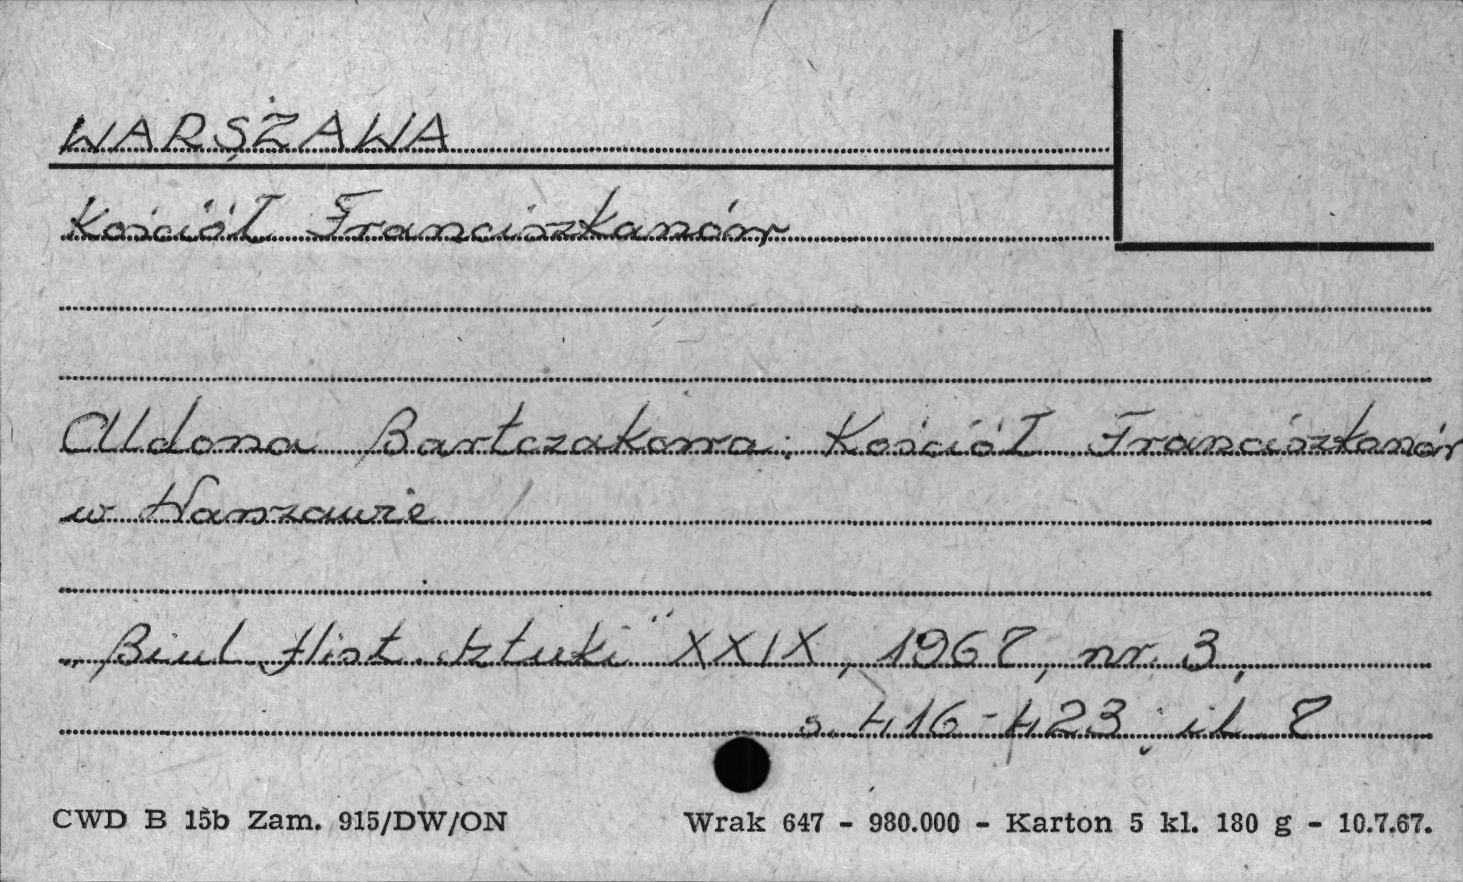 WARSZAWA
Kościół Franciszkanów
Aldona Bartczakowa: Kościół Franciszkanów
w Warszawie
„Biul. Hist. Sztuki" XXIX, 1967, nr. 3,
s. 416-423; il. 7
CWD B 15b Zam. 915/DW/ON Wrak 647 - 980.000 - Karton 5 kl. 180 g - 10.7.67.